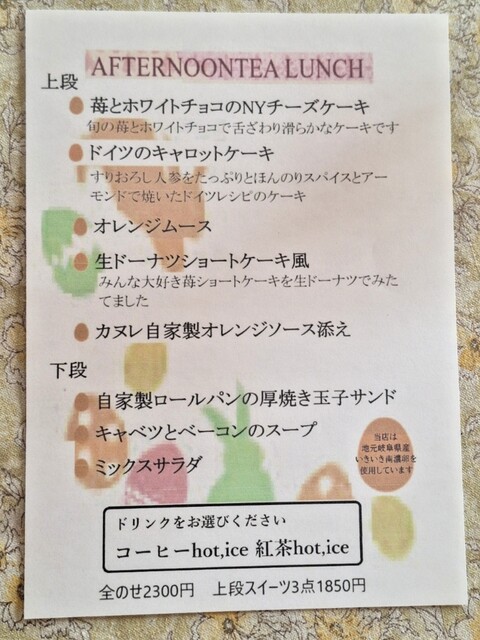 AFTERNOONTEA LUNCH
上段
苺とホワイトチョコのNYチーズケーキ
旬の苺とホワイトチョコで舌ざわり滑らかなケーキです
ドイツのキャロットケーキ
すりおろし人参をたっぷりとほんのりスパイスとアー
モンドで焼いたドイツレシピのケーキ
オレンジムース
生ドーナツショートケーキ風
みんな大好き苺ショートケーキを生ドーナツでみた
てました
カヌレ自家製オレンジソース添え
下段
自家製ロールパンの厚焼き玉子サンド
キャベツとベーコンのスープ
ミックスサラダ
当店は
地元岐阜県産
いきいき南濃卵を
使用しています
ドリンクをお選びください
コーヒーhot,ice 紅茶hot,ice
全のせ2300円 上段スイーツ3点1850円